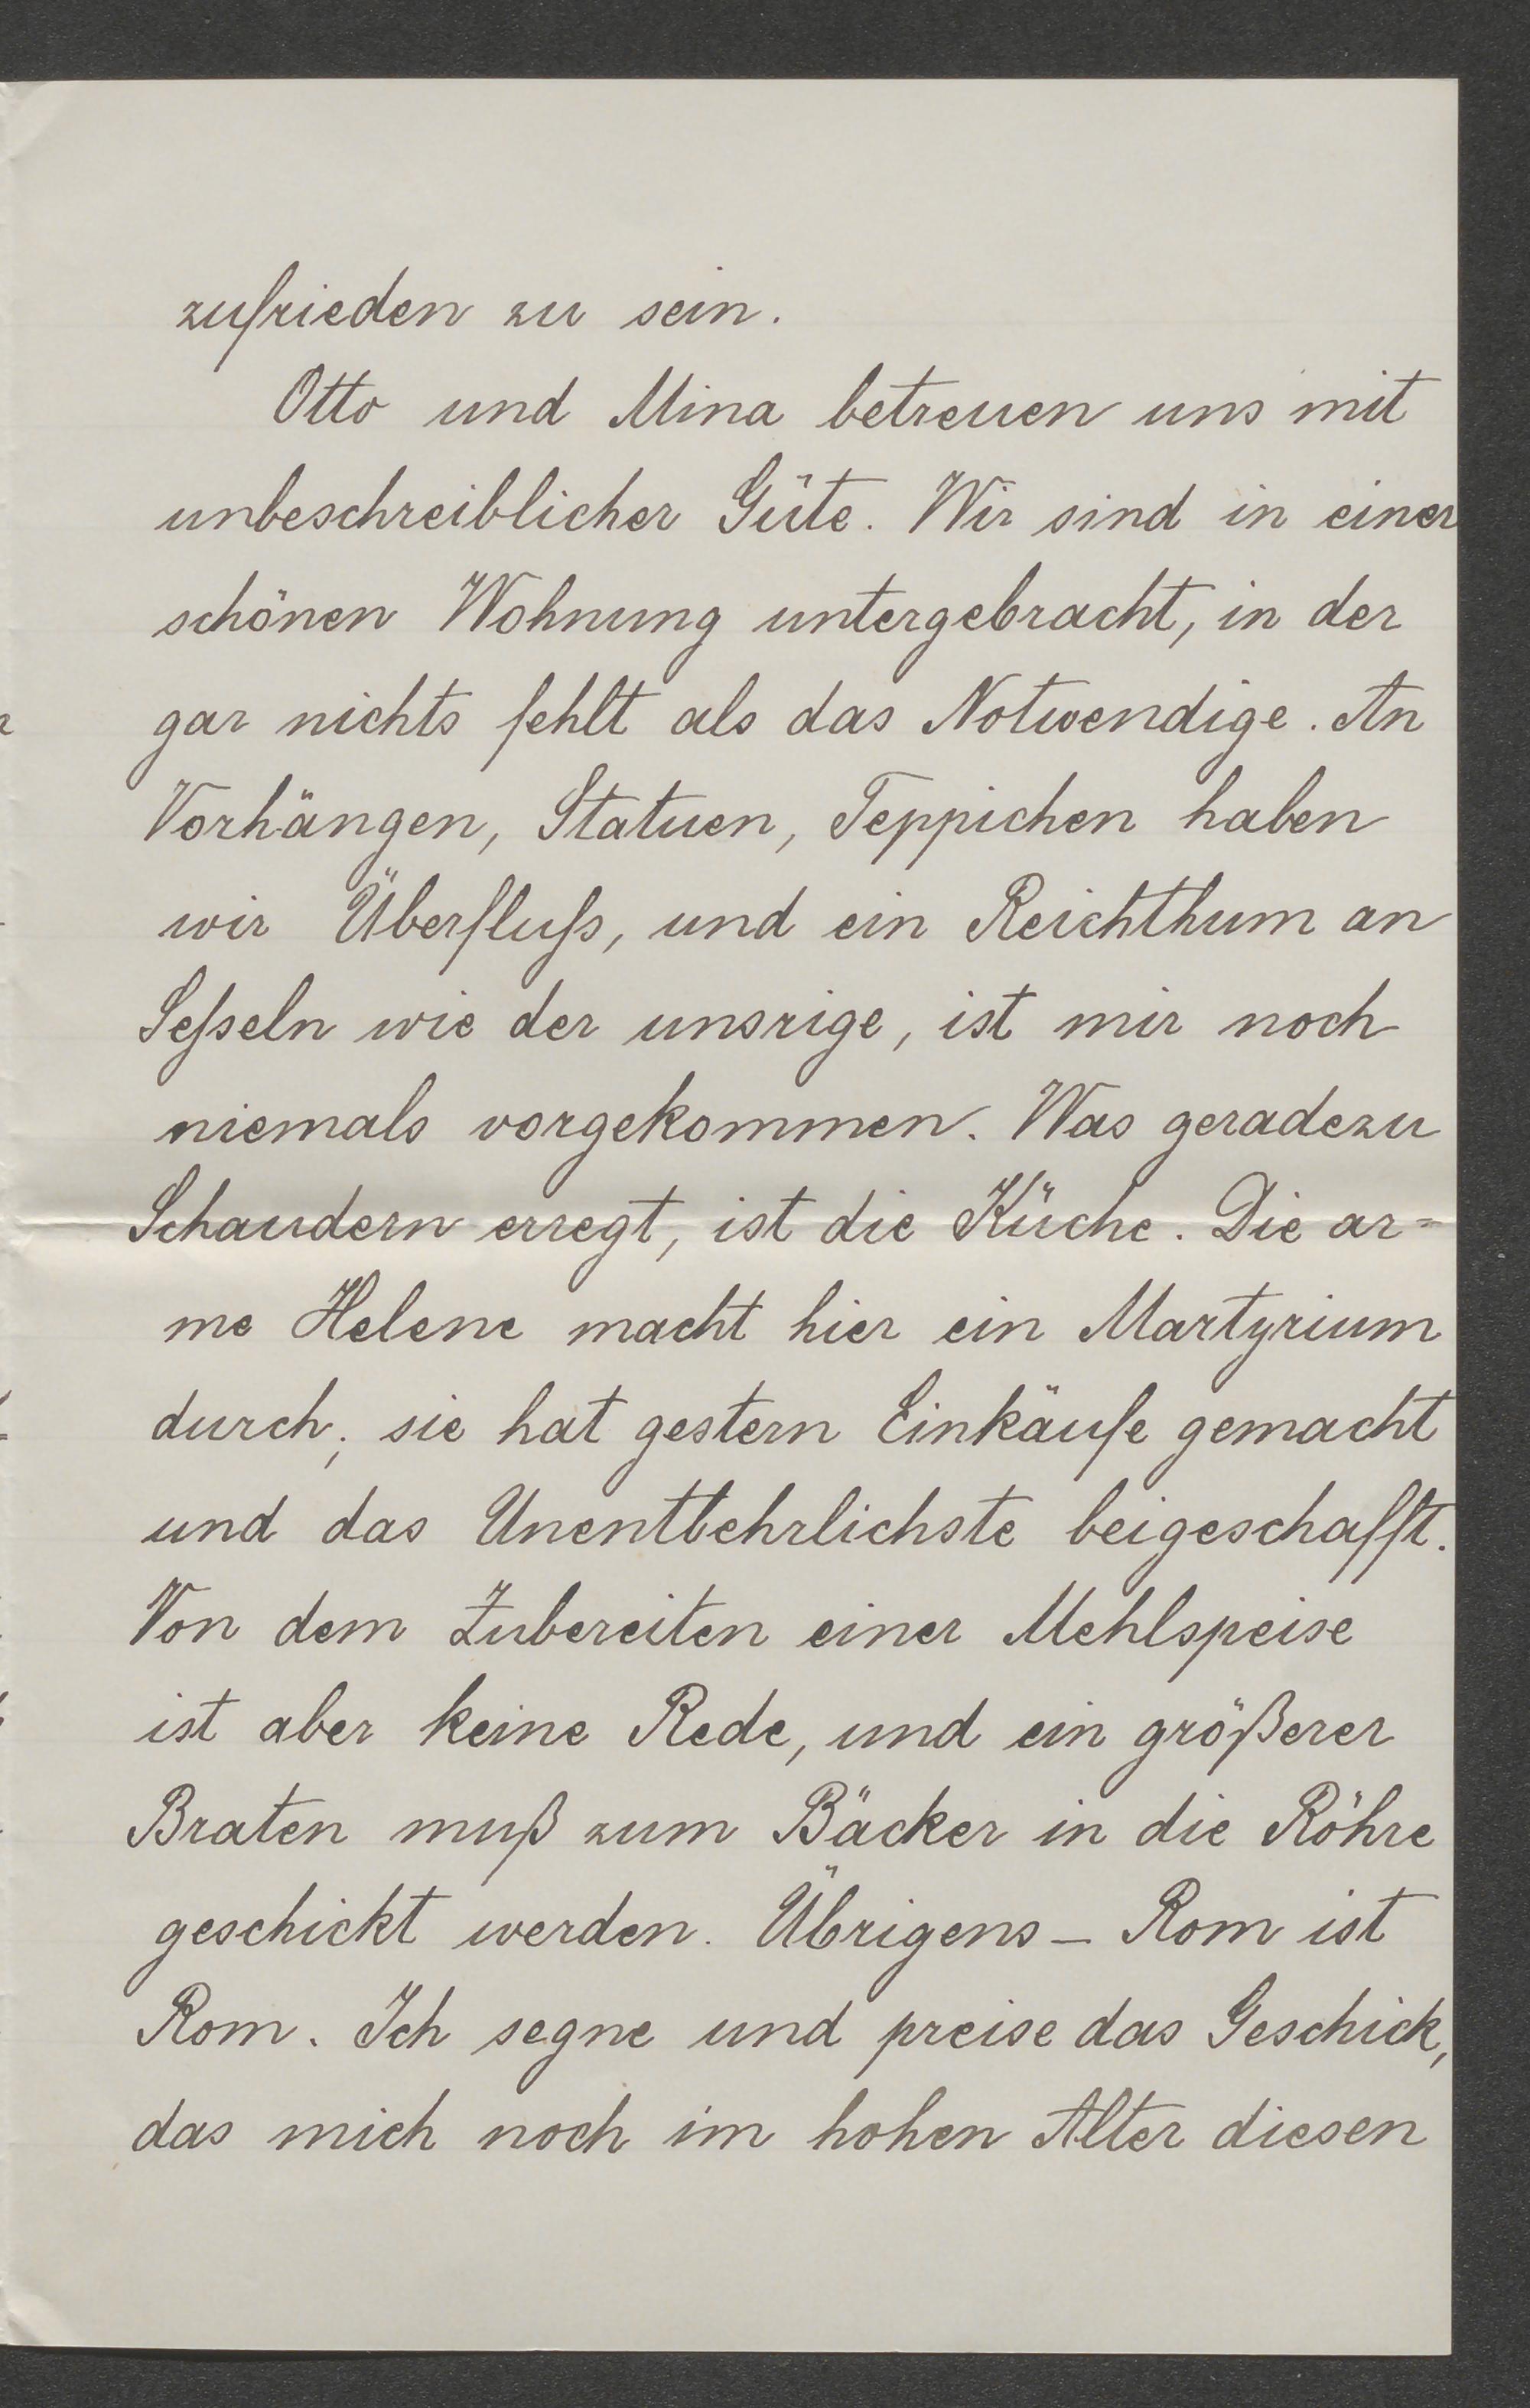 zufrieden zu sein.
Otto und Mina betreuen uns mit
unbeschreiblicher Güte. Wir sind in einer
schönen Wohnung untergebracht, in der
gar nichts fehlt als das Notwendige. An
Vorhängen, Statuen, Teppichen haben
wir Überfluſs, und ein Reichthum an
Seſseln wie der unsrige, ist mir noch
niemals vorgekommen. Was geradezu
Schaudern erregt, ist die Küche. Die ar=
me Helene macht hier ein Martyrium
durch; sie hat gestern Einkäufe gemacht
und das Unentbehrlichste beigeschafft.
Von dem Zubereiten einer Mehlspeise
ist aber keine Rede, und ein größerer
Braten muß zum Bäcker in die Röhre
geschickt werden. Übrigens – Rom ist
Rom. Ich segne und preise das Geschick,
das mich noch im hohen Alter diesen